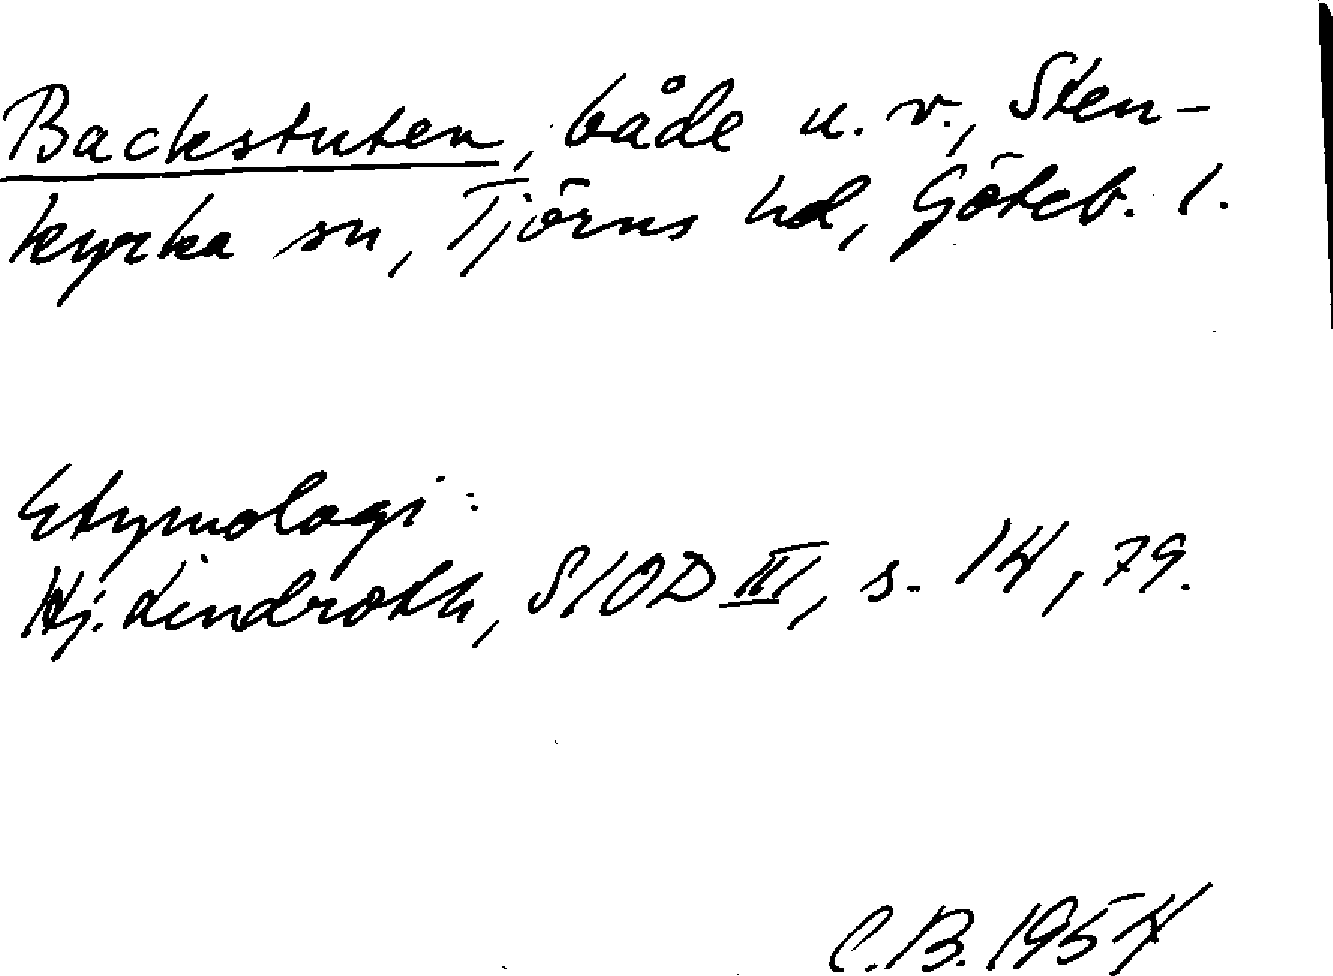 Backstuten, både u. v., Sten-
kyrka sn, Tjörns hd, Göteb. l.
Etymologi:
Hj. Lindroth, SIOD III, s. 14, 79.
C.B. 1954